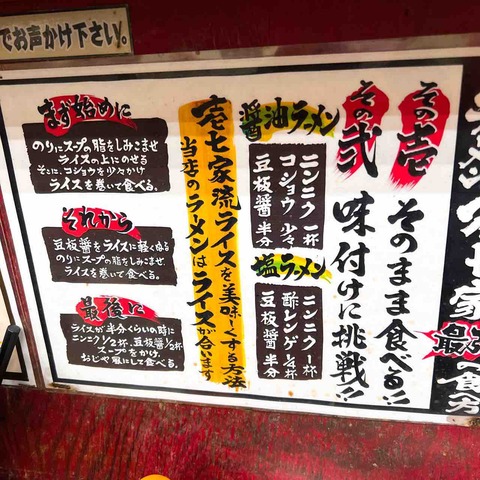 でお声かけ下さい。
その壱
そのまま食べる!!
その弐
味付けに挑戦!!
醤油ラーメン
ニンニク 一杯
コショウ 少々
豆板醤 半分
塩ラーメン
ニンニク 一杯
酢レンゲ1/4杯
豆板醤 半分
壱七家流ライスを美味しくする方法
当店のラーメンはライスが合います
まず始めに
のりにスープの脂をしみこませ
ライスの上にのせる
そこに、コショウを少々かけ
ライスを巻いて食べる。
それから
豆板醤をライスに軽くぬる
のりにスープの脂をしみこませ
ライスを巻いて食べる。
最後に
ライスが半分くらいの時に
ニンニク1/2杯、豆板醤1/2杯
スープをかけ、
おじや風にして食べる。